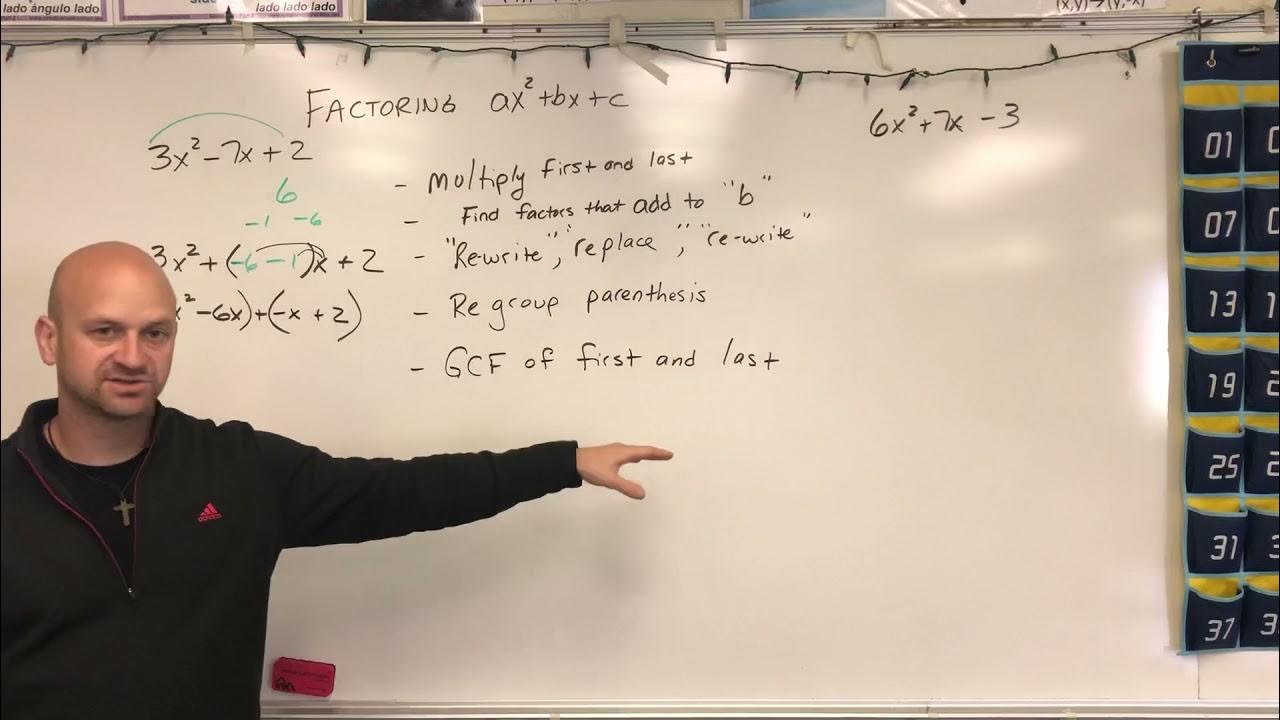 lado ángulo lado
lado lado lado
FACTORING ax²+bx+c
3x²-7x+2
6
-1 -6
3x²+(-6-1)x+2
x²-6x)+(-x+2)
- Multiply first and last
- Find factors that add to "b"
- "Re-write", "replace", "re-write"
- Regroup parenthesis
- GCF of first and last
6x²+7x-3
01
07
13
19
25
31
37
adidas